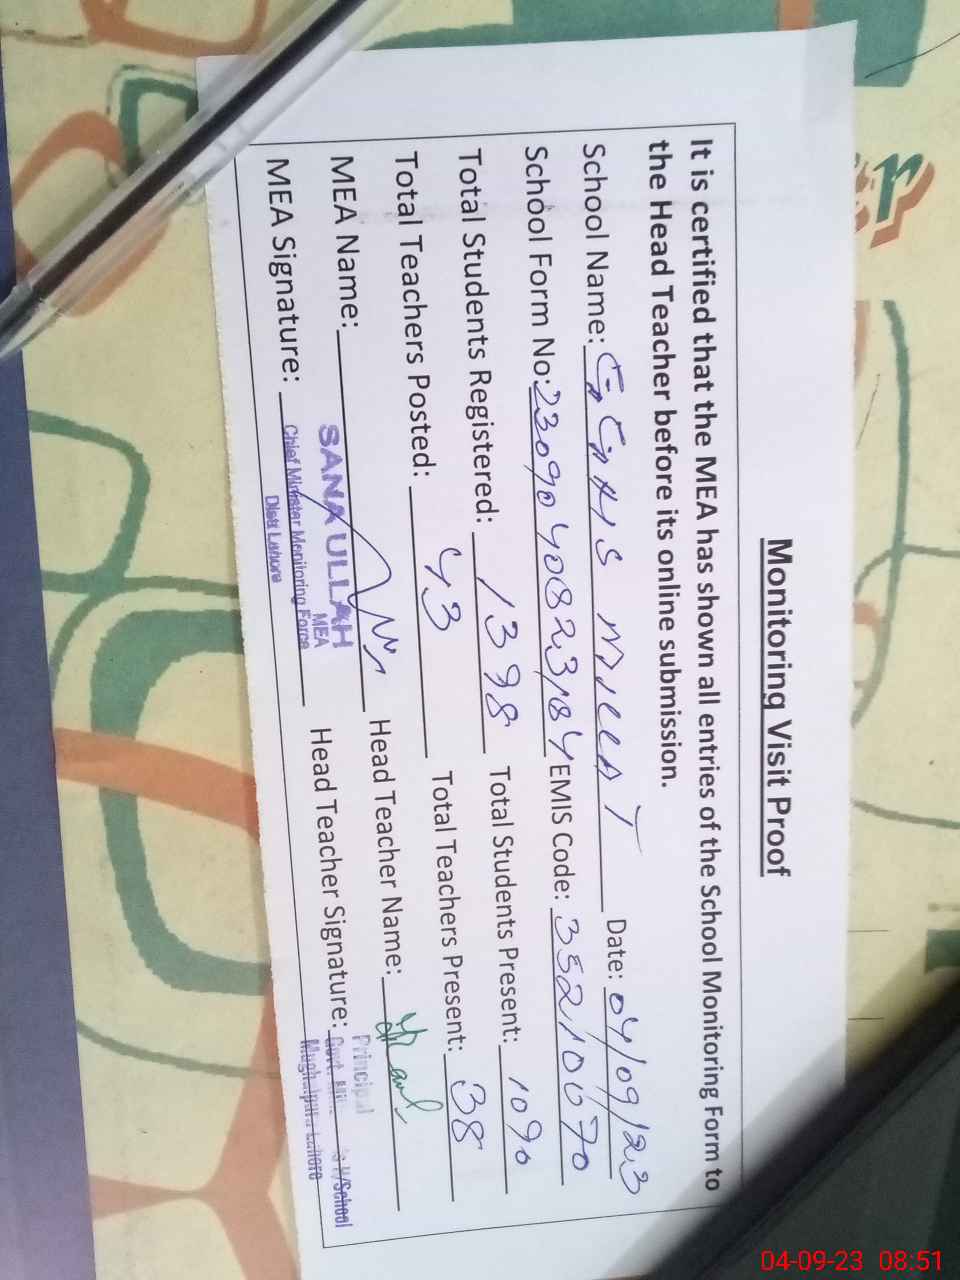 Monitoring Visit Proof
It is certified that the MEA has shown all entries of the School Monitoring Form to
the Head Teacher before its online submission.
School Name: GGHS MILLAT Date: 04/09/23
School Form No: 2309040823184 EMIS Code: 35210070
Total Students Registered: 1398 Total Students Present: 1090
Total Teachers Posted: 43 Total Teachers Present: 38
MEA Name: Head Teacher Name:
SANA ULLAH
MEA
MEA Signature: Head Teacher Signature:
Chief Minister Monitoring Force
Distt Lahore
Principal
Govt. H/School
Mughalpura Lahore
04-09-23 08:51